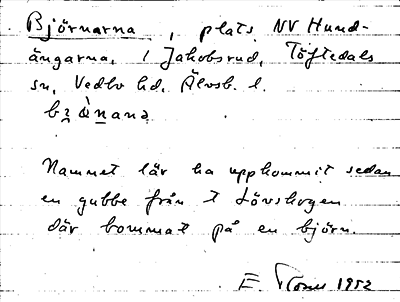 Björnarna, plats NV Hund-
ängarna, i Jakobsrud, Töftedals
sn, Vedbo hd, Älvsb. l.
Namnet lär ha uppkommit sedan
en gubbe från t Lövskogen
där bommat på en björn.
E. 1952